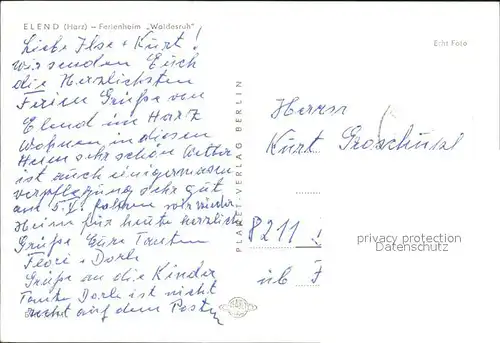 ELEND (Harz) – Ferienheim „Waldesruh"
Liebe Ilse + Kurt!
wir senden Euch
die Herzlichsten
Ferien Grüße von
Elend im Harz
Wohnen in diesen
Heim sehr schön Wetter
ist auch einigermasen
verpflegung sehr gut
am 5.V. fahren wir wieder
Heim für heute herzliche
Grüße Eure Tanten
Flori + Dorle
Grüße an die Kinder
Tante Dorle ist nicht
recht auf dem Posten
PLANET-VERLAG BERLIN
Echt Foto
Herrn
Kurt
8211
üb F
privacy protection
Datenschutz